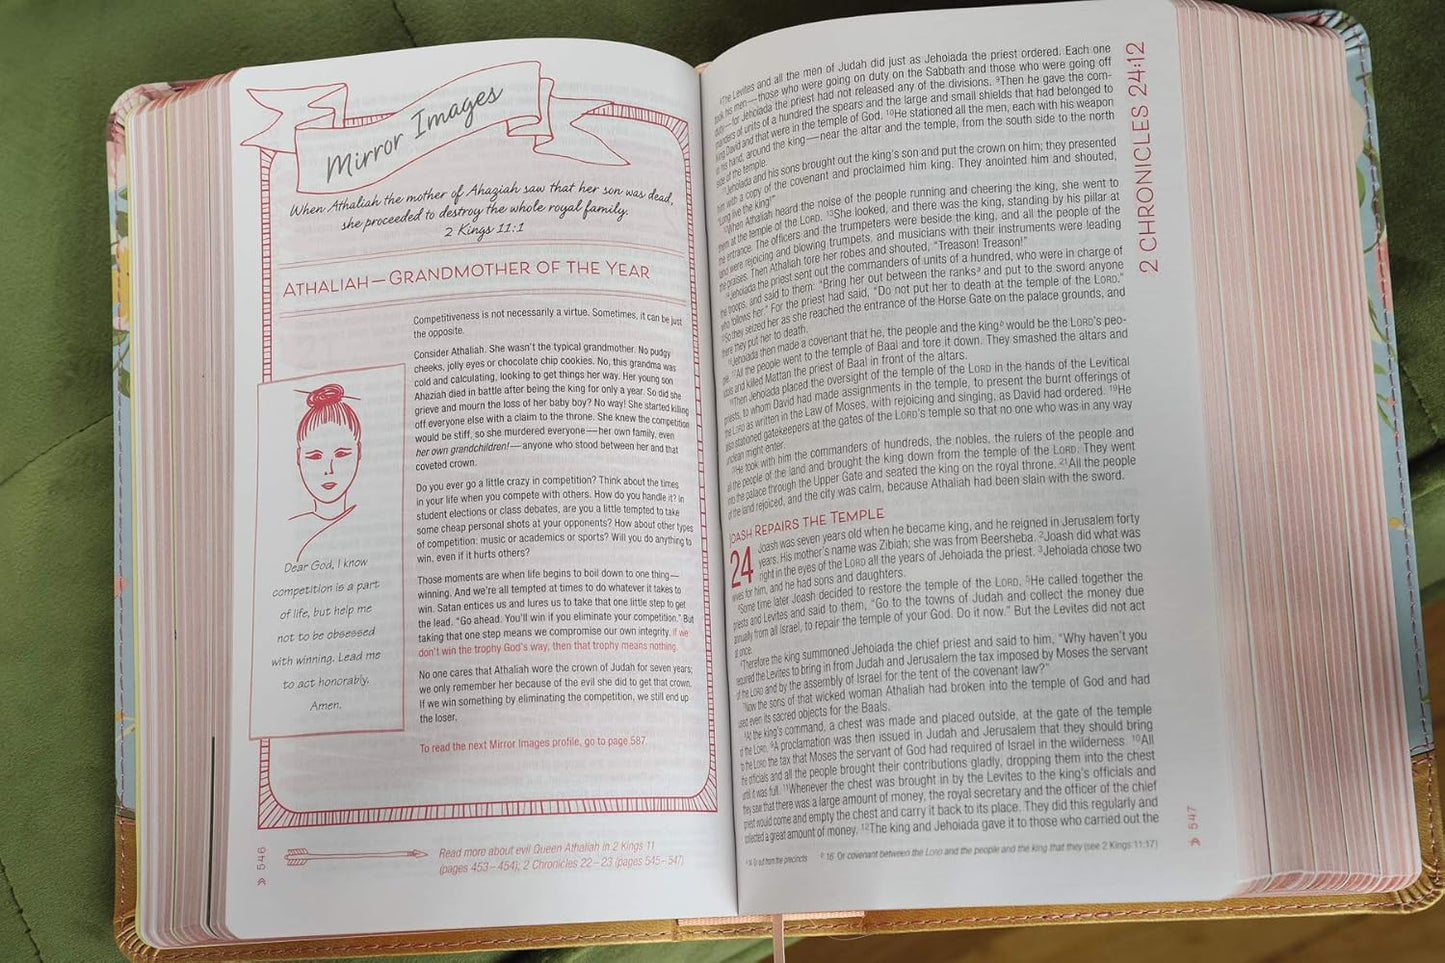 Mirror Images
When Athaliah the mother of Ahaziah saw that her son was dead,
she proceeded to destroy the whole royal family.
2 Kings 11:1
ATHALIAH—GRANDMOTHER OF THE YEAR
Competitiveness is not necessarily a virtue. Sometimes, it can be just
the opposite.
Consider Athaliah. She wasn't the typical grandmother. No pudgy
cheeks, jolly eyes or chocolate chip cookies. No, this grandma was
cold and calculating, looking to get things her way. Her young son
Ahaziah died in battle after being the king for only a year. So did she
grieve and mourn the loss of her baby boy? No way! She started killing
off everyone else with a claim to the throne. She knew the competition
would be stiff, so she murdered everyone—her own family, even
her own grandchildren!—anyone who stood between her and that
coveted crown.
Do you ever go a little crazy in competition? Think about the times
in your life when you compete with others. How do you handle it? In
student elections or class debates, are you a little tempted to take
some cheap personal shots at your opponents? How about other types
of competition: music or academics or sports? Will you do anything to
win, even if it hurts others?
Those moments are when life begins to boil down to one thing—
winning. And we're all tempted at times to do whatever it takes to
win. Satan entices us and lures us to take that one little step to get
the lead. "Go ahead. You'll win if you eliminate your competition." But
taking that one step means we compromise our own integrity. If we
don't win the trophy God's way, then that trophy means nothing.
No one cares that Athaliah wore the crown of Judah for seven years;
we only remember her because of the evil she did to get that crown.
If we win something by eliminating the competition, we still end up
the loser.
To read the next Mirror Images profile, go to page 587.
Dear God, I know
competition is a part
of life, but help me
not to be obsessed
with winning. Lead me
to act honorably.
Amen.
Read more about evil Queen Athaliah in 2 Kings 11
(pages 453–454); 2 Chronicles 22–23 (pages 545–547)
546
2 CHRONICLES 24:12
⁸The Levites and all the men of Judah did just as Jehoiada the priest ordered. Each one
took his men—those who were going on duty on the Sabbath and those who were going off
duty—for Jehoiada the priest had not released any of the divisions. ⁹Then he gave the com-
manders of units of a hundred the spears and the large and small shields that had belonged to
King David and that were in the temple of God. ¹⁰He stationed all the men, each with his weapon
in his hand, around the king—near the altar and the temple, from the south side to the north
side of the temple.
¹¹Jehoiada and his sons brought out the king's son and put the crown on him; they presented
him with a copy of the covenant and proclaimed him king. They anointed him and shouted,
"Long live the king!"
¹²When Athaliah heard the noise of the people running and cheering the king, she went to
them at the temple of the LORD. ¹³She looked, and there was the king, standing by his pillar at
the entrance. The officers and the trumpeters were beside the king, and all the people of the
land were rejoicing and blowing trumpets, and musicians with their instruments were leading
the praises. Then Athaliah tore her robes and shouted, "Treason! Treason!"
¹⁴Jehoiada the priest sent out the commanders of units of a hundred, who were in charge of
the troops, and said to them: "Bring her out between the ranksᵃ and put to the sword anyone
who follows her." For the priest had said, "Do not put her to death at the temple of the LORD."
¹⁵So they seized her as she reached the entrance of the Horse Gate on the palace grounds, and
there they put her to death.
¹⁶Jehoiada then made a covenant that he, the people and the kingᵇ would be the LORD's peo-
ple. ¹⁷All the people went to the temple of Baal and tore it down. They smashed the altars and
idols and killed Mattan the priest of Baal in front of the altars.
¹⁸Then Jehoiada placed the oversight of the temple of the LORD in the hands of the Levitical
priests, to whom David had made assignments in the temple, to present the burnt offerings of
the LORD as written in the Law of Moses, with rejoicing and singing, as David had ordered. ¹⁹He
also stationed gatekeepers at the gates of the LORD's temple so that no one who was in any way
unclean might enter.
²⁰He took with him the commanders of hundreds, the nobles, the rulers of the people and
all the people of the land and brought the king down from the temple of the LORD. They went
into the palace through the Upper Gate and seated the king on the royal throne. ²¹All the people
of the land rejoiced, and the city was calm, because Athaliah had been slain with the sword.
JOASH REPAIRS THE TEMPLE
24 Joash was seven years old when he became king, and he reigned in Jerusalem forty
years. His mother's name was Zibiah; she was from Beersheba. ²Joash did what was
right in the eyes of the LORD all the years of Jehoiada the priest. ³Jehoiada chose two
wives for him, and he had sons and daughters.
⁴Some time later Joash decided to restore the temple of the LORD. ⁵He called together the
priests and Levites and said to them, "Go to the towns of Judah and collect the money due
annually from all Israel, to repair the temple of your God. Do it now." But the Levites did not act
at once.
⁶Therefore the king summoned Jehoiada the chief priest and said to him, "Why haven't you
required the Levites to bring in from Judah and Jerusalem the tax imposed by Moses the servant
of the LORD and by the assembly of Israel for the tent of the covenant law?"
⁷Now the sons of that wicked woman Athaliah had broken into the temple of God and had
used even its sacred objects for the Baals.
⁸At the king's command, a chest was made and placed outside, at the gate of the temple
of the LORD. ⁹A proclamation was then issued in Judah and Jerusalem that they should bring
to the LORD the tax that Moses the servant of God had required of Israel in the wilderness. ¹⁰All
the officials and all the people brought their contributions gladly, dropping them into the chest
until it was full. ¹¹Whenever the chest was brought in by the Levites to the king's officials and
they saw that there was a large amount of money, the royal secretary and the officer of the chief
priest would come and empty the chest and carry it back to its place. They did this regularly and
collected a great amount of money. ¹²The king and Jehoiada gave it to those who carried out the
ᵃ 14 Or out from the precincts ᵇ 16 Or covenant between the LORD and the people and the king that they (see 2 Kings 11:17)
547